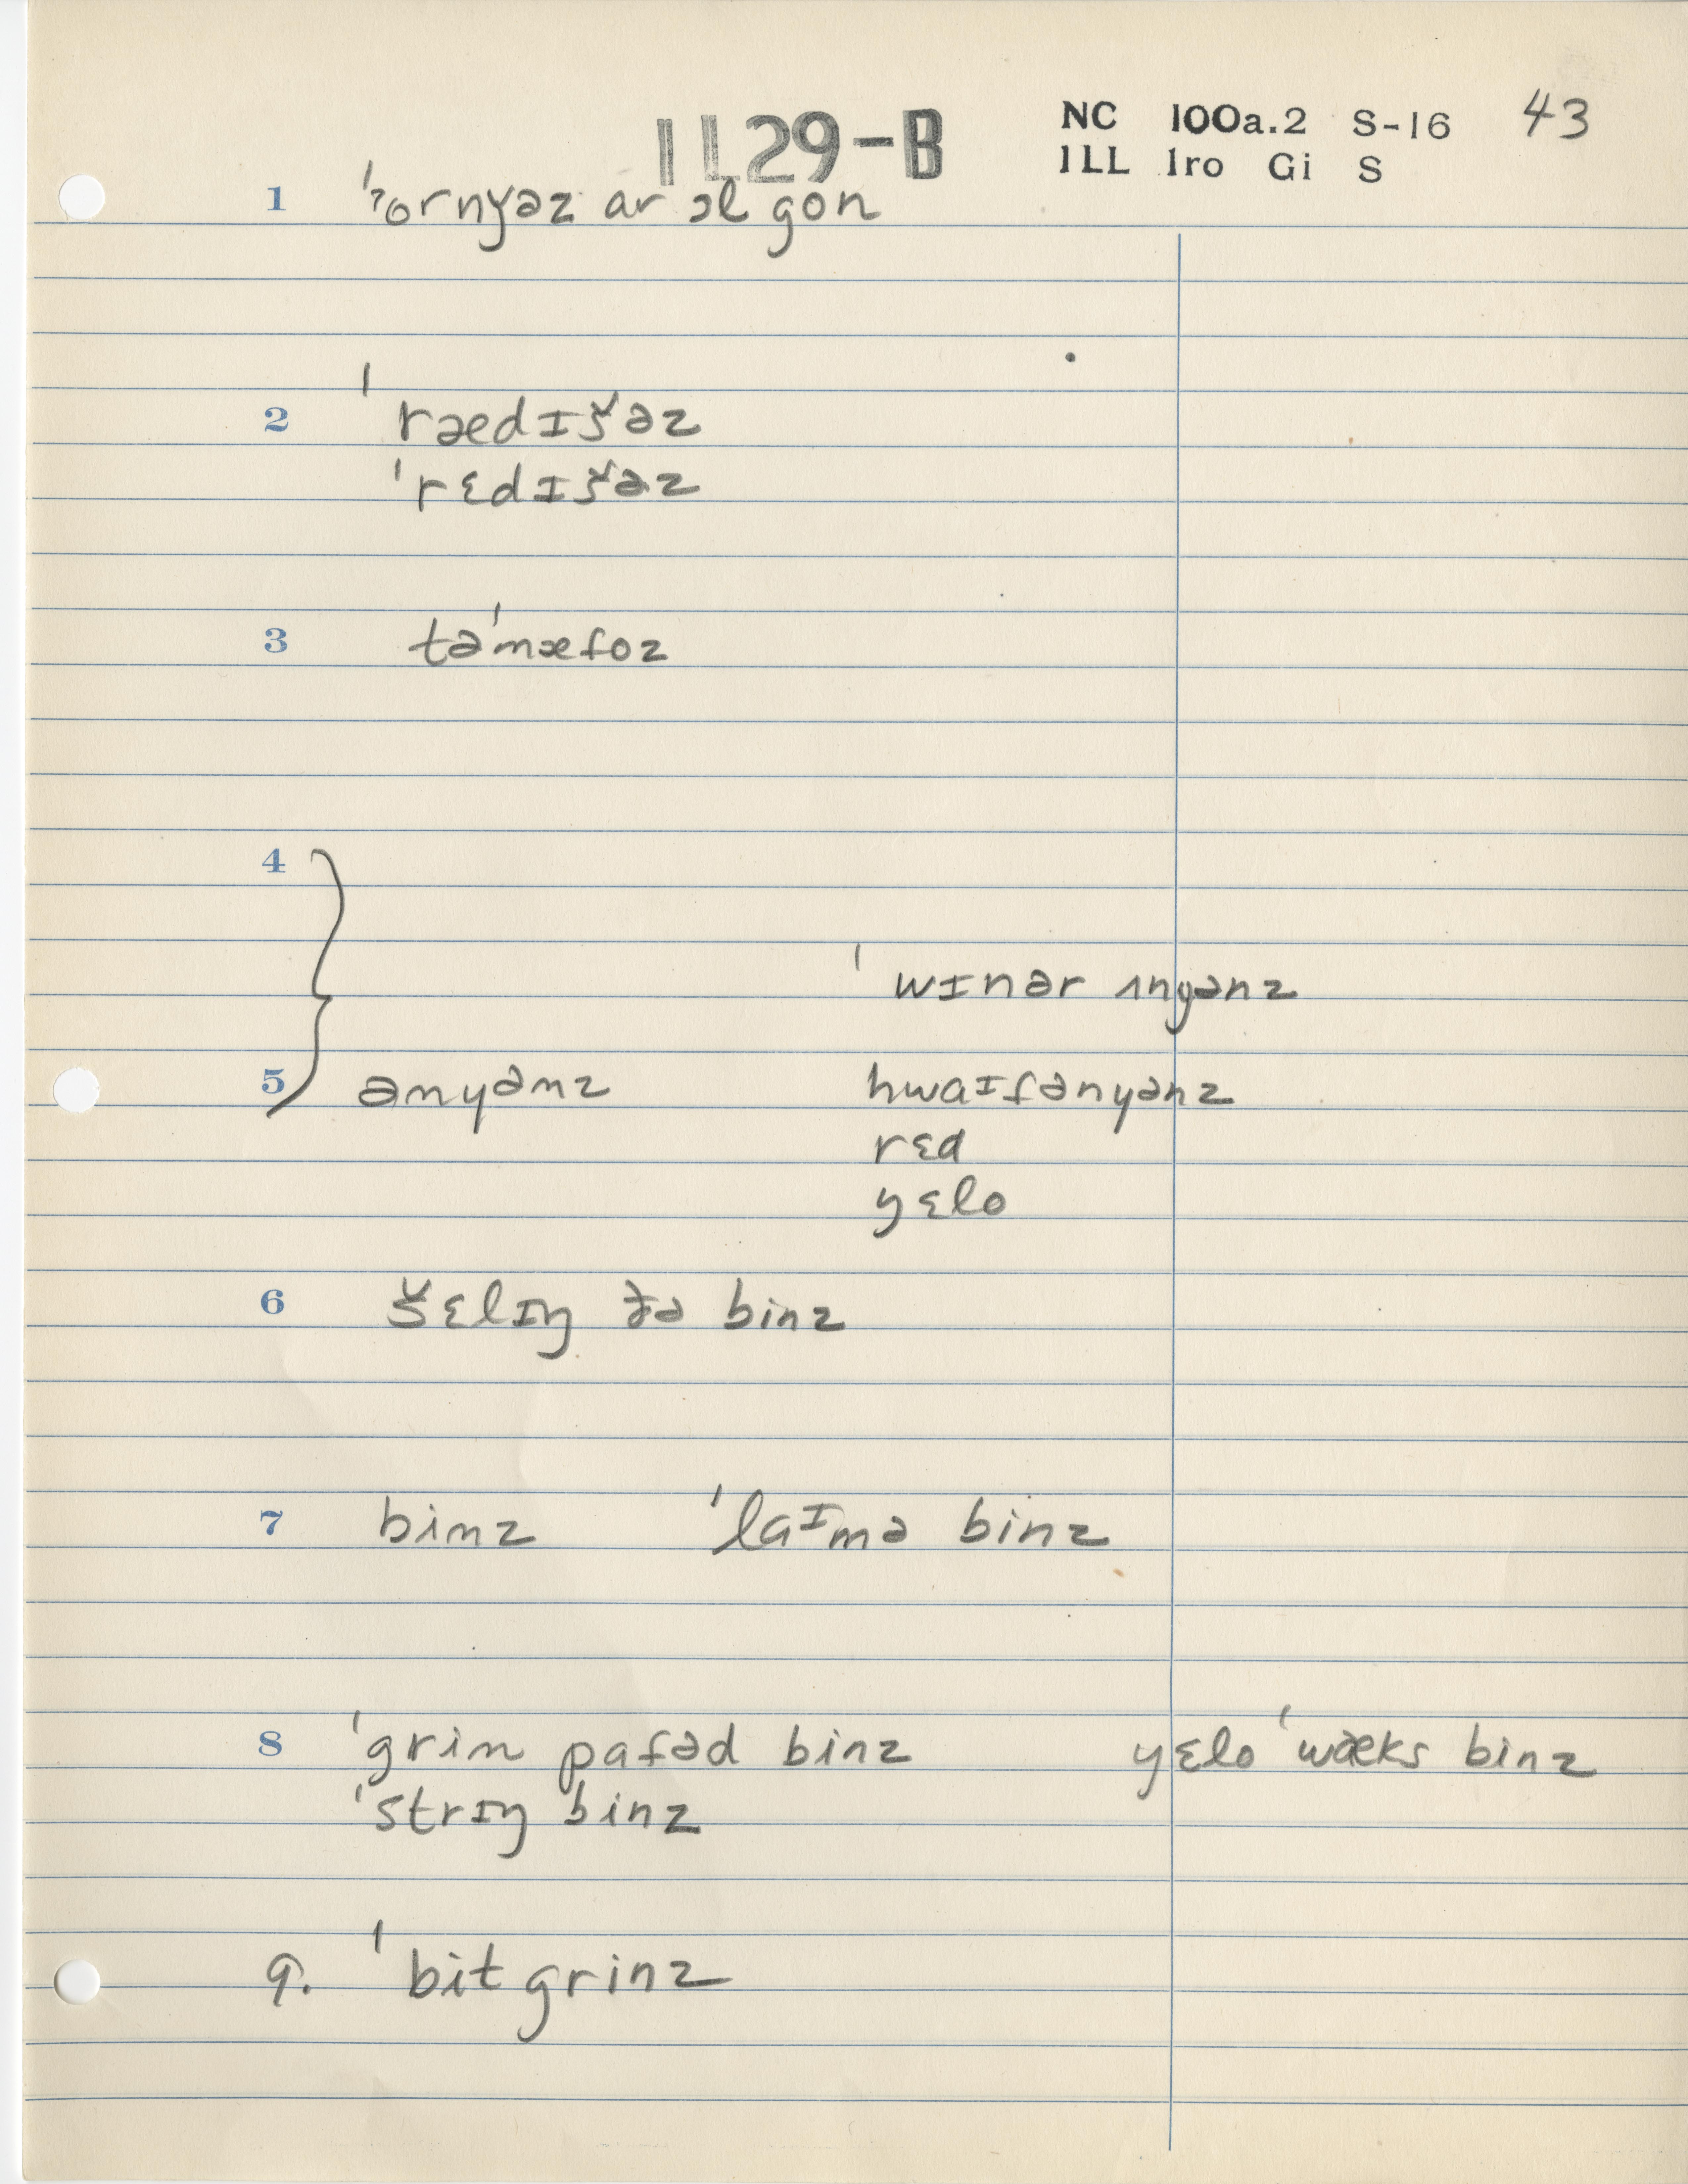 1L29-B
NC 100a.2 S-16 43
ILL Iro Gi S
1 ˈɂornyəz ar ɔl gon
2 ˈrædɪšəz
ˈrɛdɪšəz
3 təˈmæfoz
4
ˈwɪnər ɪnyənz
5 ənyənz hwaɪfənyənz
rɛd
yɛlo
6 šɛlɪŋ ðə binz
7 binz ˈlaᶦmə binz
8 ˈgrin pafəd binz yɛlo ˈwæks binz
ˈstrɪŋ binz
9. ˈbit grinz